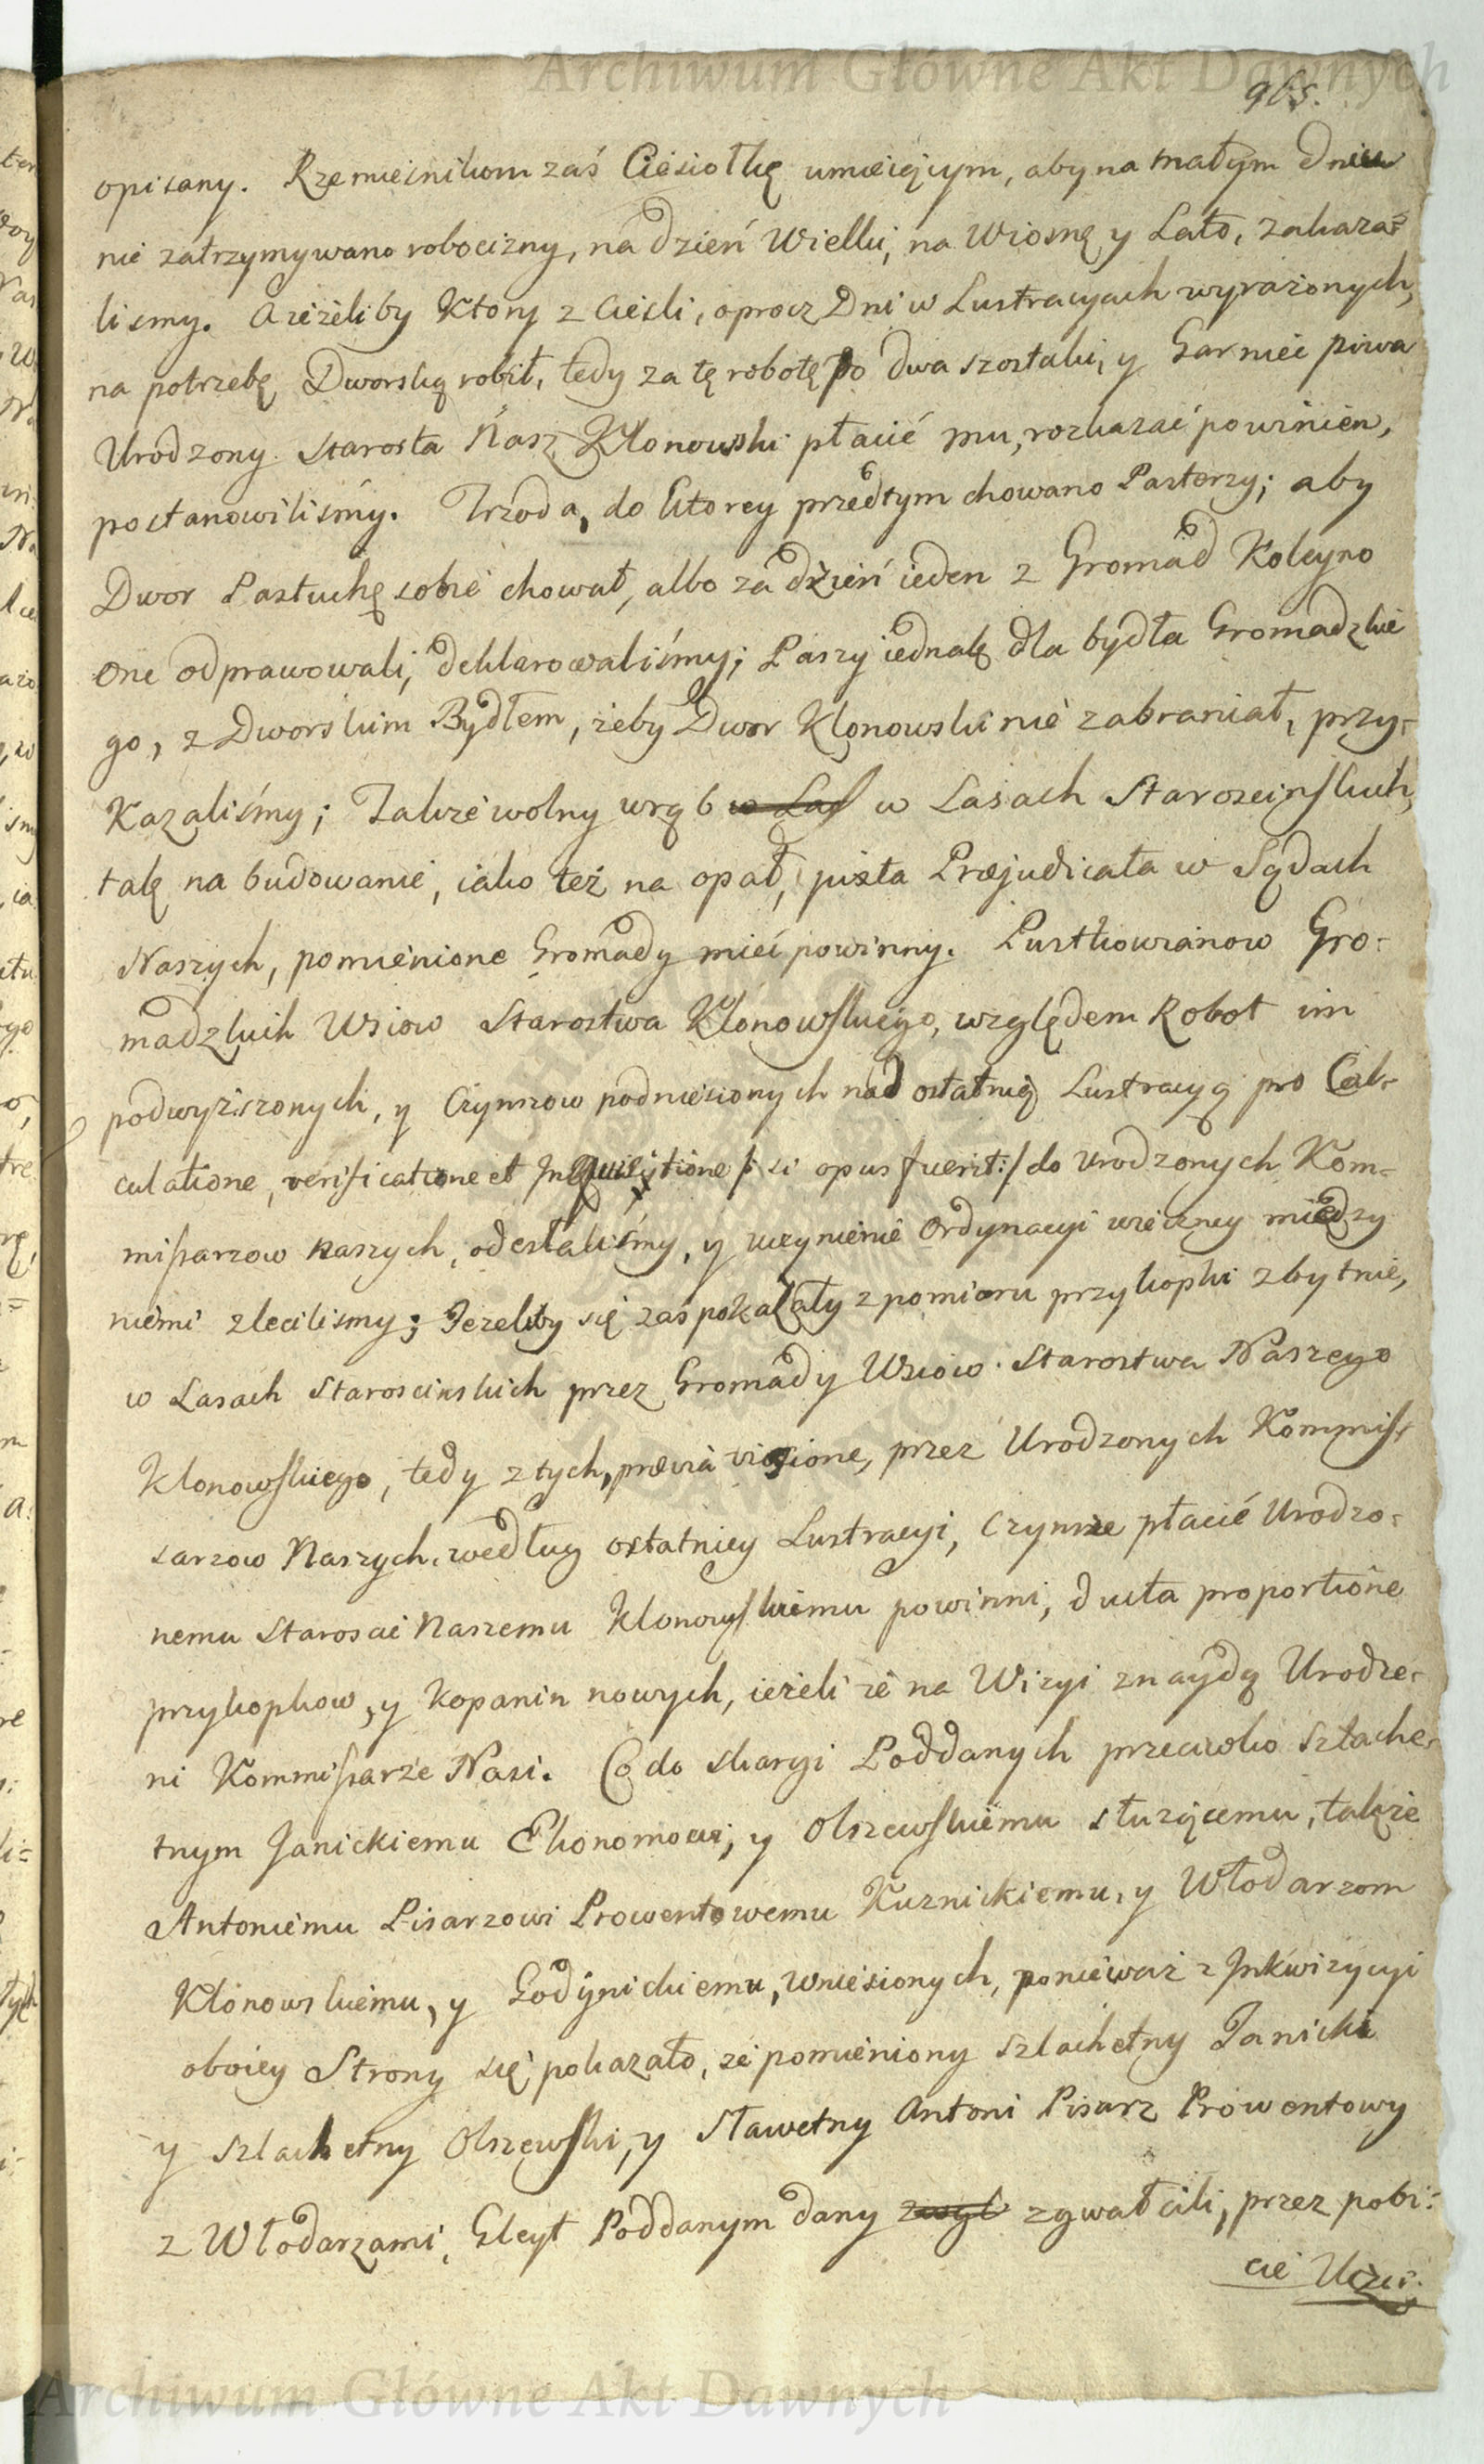 Archiwum Główne Akt Dawnych
965.
opisany. Rzemieśnikom zaś Ciesiołkę umieiącym, aby na małym Dniu
nie zatrzymywano robocizny, na dzień Wielki, na Wiosnę y Lato, zakaza=
lismy. A ieżeliby Ktory z Cieśli, oprocz Dni w Lustracyach wyrażonych,
na potrzebę Dworską robił, tedy za tę robotę po dwa szostaki, y Garniec piwa
Urodzony Starosta Nasz Klonowski płacić mu, rozkazać powinien,
postanowiliśmy. Trzoda, do ktorey przedtym chowano Pasterzy; aby
Dwor Pastuchę sobie chował, albo za dzień ieden z Gromad Koleyno
one odprawowali, deklarowaliśmy; Paszy iednak dla bydła Gromadzkie
go, z Dworskim Bydłem, żeby Dwor Klonowski nie zabraniał, przy=
Kazaliśmy; Także wolny wrąb w Las w Lasach Starościnskich,
tak na budowanie, iako też na opał, juxta Præjudicata w Sądach
Naszych, pomienione Gromady mieć powinny. Pustkowianow Gro=
madzkich Wsiow Starostwa Klonowskiego, względem Robot im
podwyższonych, y Czynszow podniesionych nad ostatnią Lustracyą pro Cal=
culatione, verificatione et Inquisitione /: si opus fuerit :/ do Urodzonych Kom=
missarzow naszych, odesłaliśmy, y uczynienie Ordynacyi wieczney między
niemi zlecilismy; Jezeliby się zaś pokazały z pomiaru przykopki zbytnie,
w Lasach Staroscinskich przez Gromady Wsiow Starostwa Naszego
Klonowskiego, tedy z tych, prævia visione, przez Urodzonych Kommis=
sarzow Naszych, według ostatniey Lustracyi, Czynsze płacić Urodzo=
nemu Staroscie Naszemu Klonowskiemu powinni, ducta proportione
przykopkow, y Kopanin nowych, ieżeli że na Wizyi znaydą Urodze=
ni Kommissarze Nasi. Co do skargi Poddanych przeciwko Szlache=
tnym Janickiemu Ekonomowi, y Olszewskiemu służącemu, także
Antoniemu Pisarzowi Prowentowemu Kuznickiemu, y Włodarzom
Klonowskiemu, y Godynickiemu, wniesionych, ponieważ z Inkwizycyi
oboiey Strony się pokazało, że pomieniony Szlachetny Janicki
y Szlachetny Olszewski, y Sławetny Antoni Pisarz Prowentowy
z Włodarzami, Gleyt Poddanym dany zgwałcili, przez pobi=
cie
Archiwum Główne Akt Dawnych